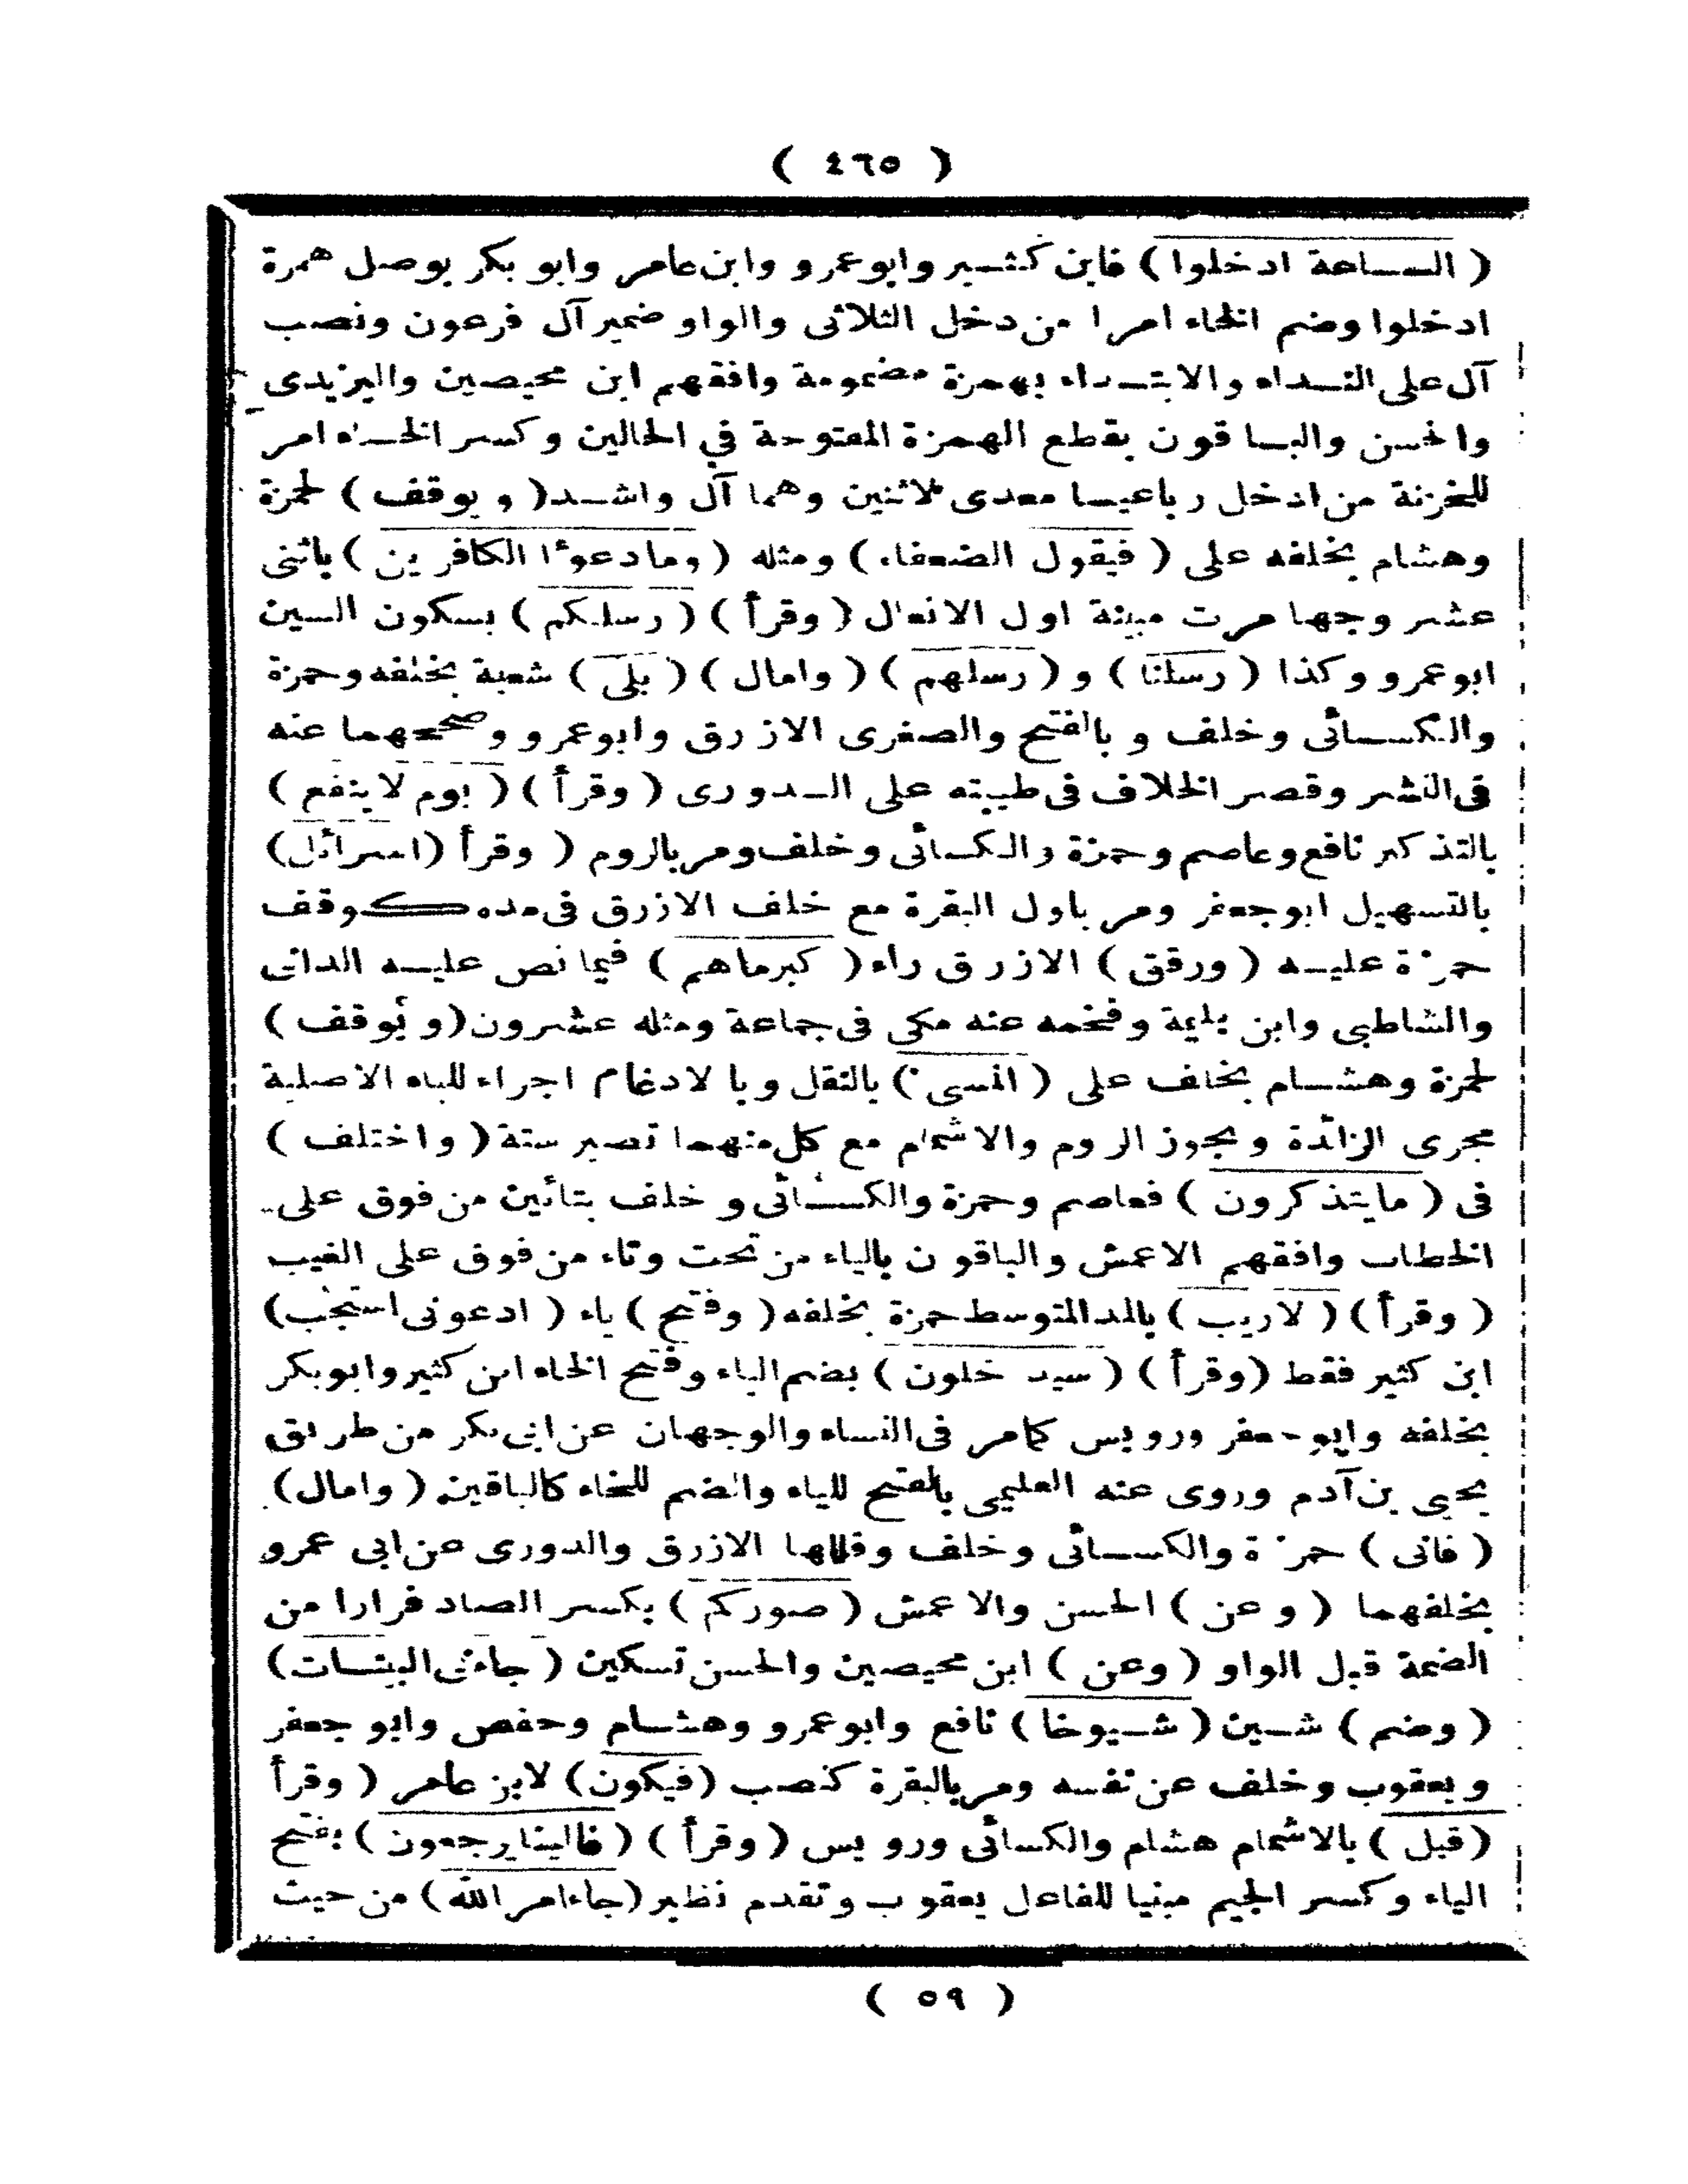 ( ٤٦٥ )
( الساعة ادخلوا ) فابن كثير وابوعمرو وابن عامر وابو بكر بوصل همزة
ادخلوا وضم الخاء امرا من دخل الثلاثى والواو ضمير آل فرعون ونصب
آل على النداء والابتداء بهمزة مضمومة وافقهم ابن محيصين واليزيدى
والحسن والباقون بقطع الهمزة المفتوحة في الحالين وكسر الخاء امر
للخزنة من ادخل رباعيا معدى لاثنين وهما آل واشد ( ويوقف ) لحمزة
وهشام بخلفه على ( فيقول الضعفاء ) ومثله ( وما دعوٴا الكافرين ) باثنى
عشر وجها مرت مبينة اول الانعال ( وقرأ ) ( رسلكم ) بسكون السين
ابوعمرو وكذا ( رسلنا ) و ( رسلهم ) ( وامال ) ( بلى ) شعبة بخلفه وحمزة
والكسائى وخلف و بالفتح والصغرى الازرق وابوعمرو وصححهما عنه
فى النشر وقصر الخلاف فى طيبته على الدورى ( وقرأ ) ( يوم لاينفع )
بالتذكير نافع وعاصم وحمزة والكسائى وخلف ومر بالروم ( وقرأ ( اسرائل )
بالتسهيل ابوجعفر ومر باول البقرة مع خلف الازرق فى مده كوقف
حمزة عليه ( ورقق ) الازرق راء ( كبرماهم ) فيما نص عليه الدانى
والشاطبى وابن بليمة وفخمه عنه مكى فى جماعة ومثله عشرون ( و يوقف )
لحمزة وهشام بخلف على ( المسىء ) بالنقل وبا لادغام اجراء للياء الاصلية
مجرى الزائدة ويجوز الروم والاشمام مع كل منهما تصير ستة ( واختلف )
فى ( مايتذكرون ) فعاصم وحمزة والكسائى و خلف بتائين من فوق على
الخطاب وافقهم الاعمش والباقون بالياء من تحت وتاء من فوق على الغيب
( وقرأ ) ( لاريب ) بالمد المتوسط حمزة بخلفه ( وفتح ) ياء ( ادعونى استجب )
ابن كثير فقط ( وقرأ ) ( سيد خلون ) بضم الياء وفتح الخاء ابن كثير وابوبكر
بخلفه وابو جعفر ورويس كامر فى النساء والوجهان عن ابى بكر من طريق
يحيى بن آدم وروى عنه العليمى بالفتح للياء والضم للخاء كالباقين ( وامال )
( فانى ) حمزة والكسائى وخلف وقللها الازرق والدورى عن ابى عمرو
بخلفهما ( وعن ) الحسن والاعمش ( صوركم ) بكسر الصاد فرارا من
الضمة قبل الواو ( وعن ) ابن محيصين والحسن تسكين ( جاءنى البينات )
( وضم ) شين ( شيوخا ) نافع وابوعمرو وهشام وحفص وابو جعفر
ويعقوب وخلف عن نفسه ومر بالبقرة كنصب ( فيكون ) لابن عامر ( وقرأ
( قيل ) بالاشمام هشام والكسائى ورويس ( وقرأ ) ( فالينا يرجعون ) بفتح
الياء وكسر الجيم مبنيا للفاعل يعقوب وتقدم نظير ( جاء امر الله ) من حيث
( ٥٩ )